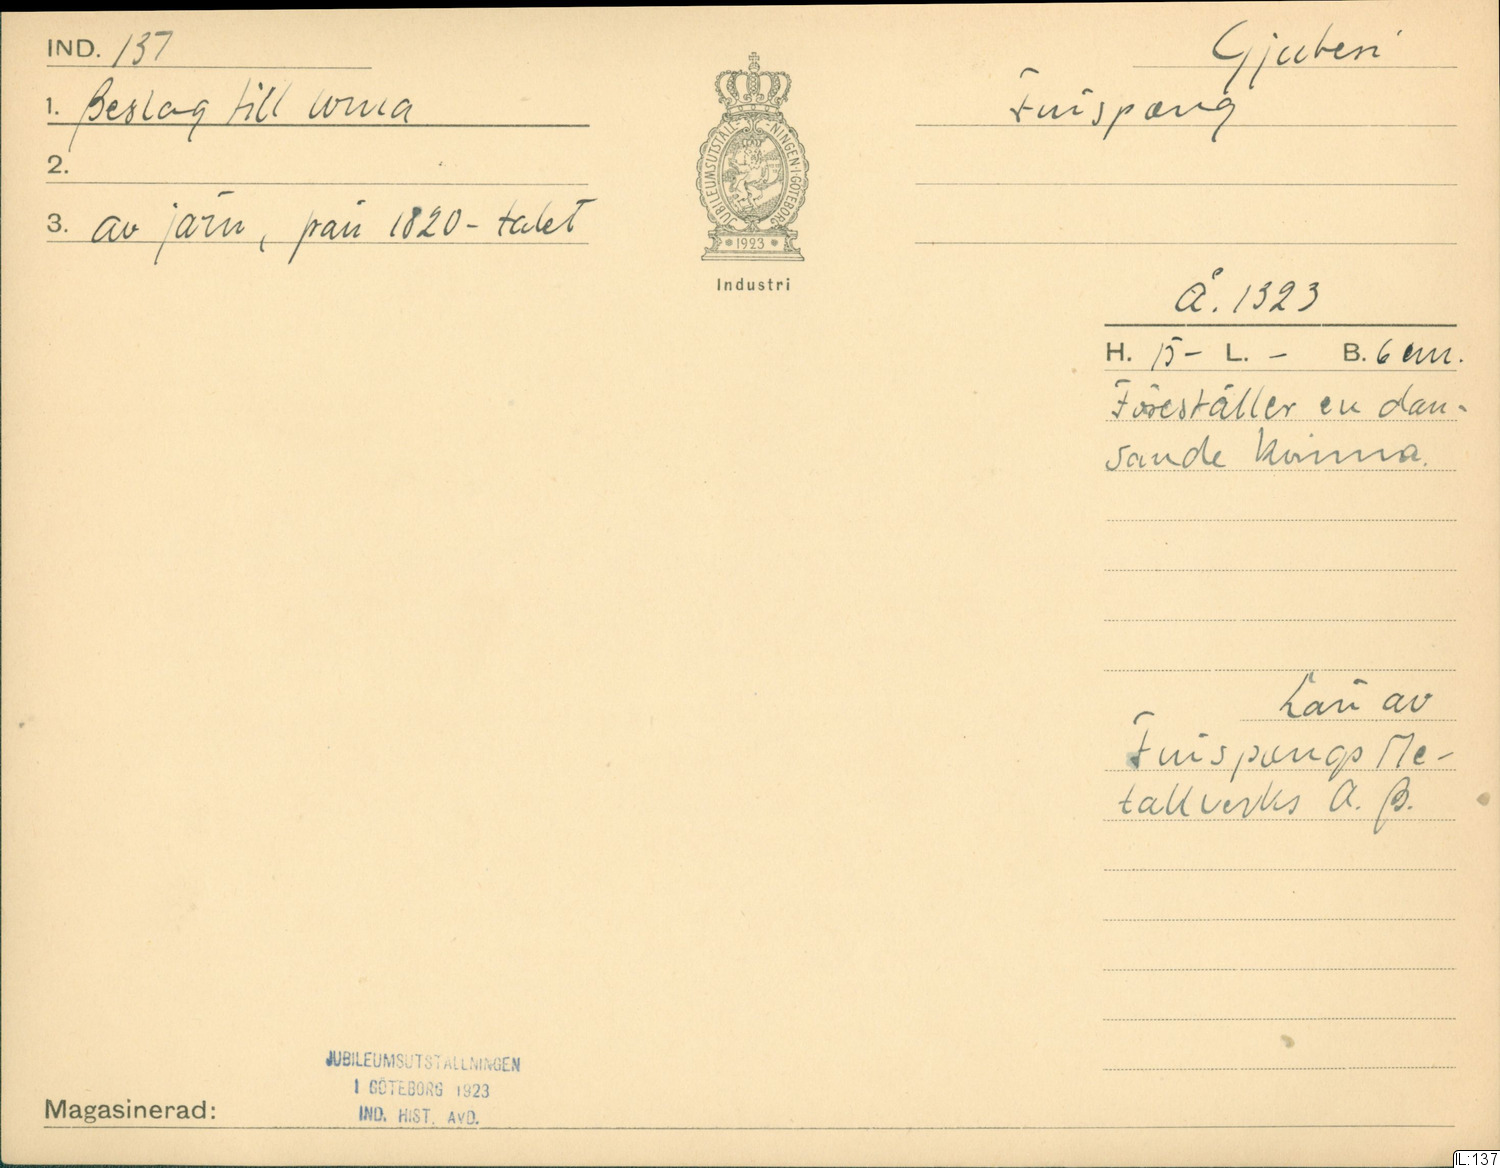 IND. 137
Gjuteri
1. Beslag till urna
Finspång
2.
3. av järn, från 1820-talet
JUBILEUMSUTSTÄLLNINGEN I GÖTEBORG
1923
Industri
Å. 1323
H. 15 - L. - B. 6 cm.
Föreställer en dan-
sande kvinna.
Lån av
Finspångs Me-
tallverks A. B.
JUBILEUMSUTSTÄLLNINGEN
I GÖTEBORG 1923
IND. HIST. AVD.
Magasinerad:
IL:137